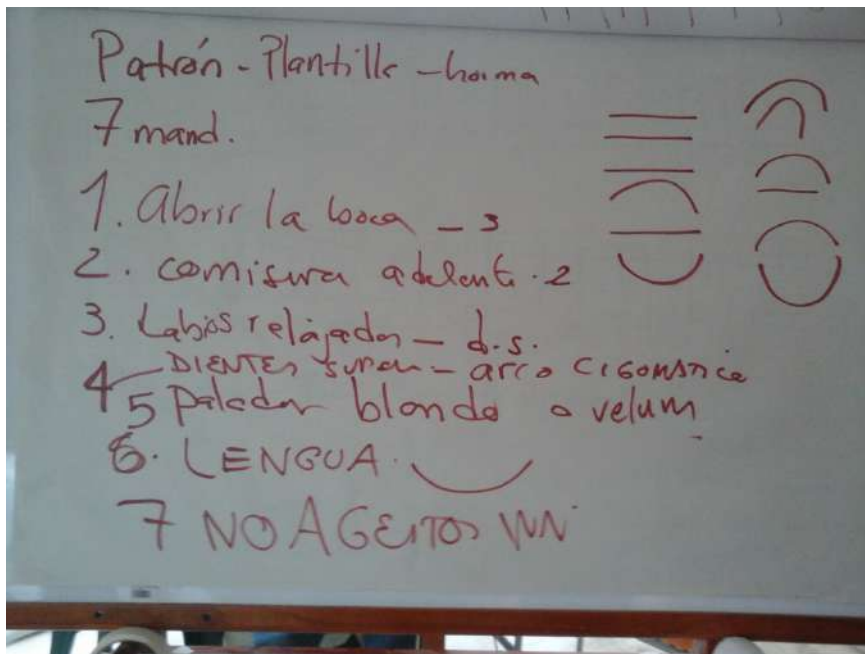 Patrón - Plantilla - horma
7 mand.
1. Abrir la boca - 3
2. comisura adelant. 2
3. Labios relajados - d.s.
4 - DIENTES super - arco cigomático
5 Paladar blando o velum
6. LENGUA.
7 NO AGEITOS